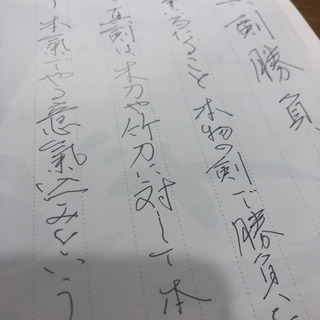 剣勝負
なること 本物の剣で勝負
真剣は木刀や竹刀に対して本
本氣でやる意氣込みという